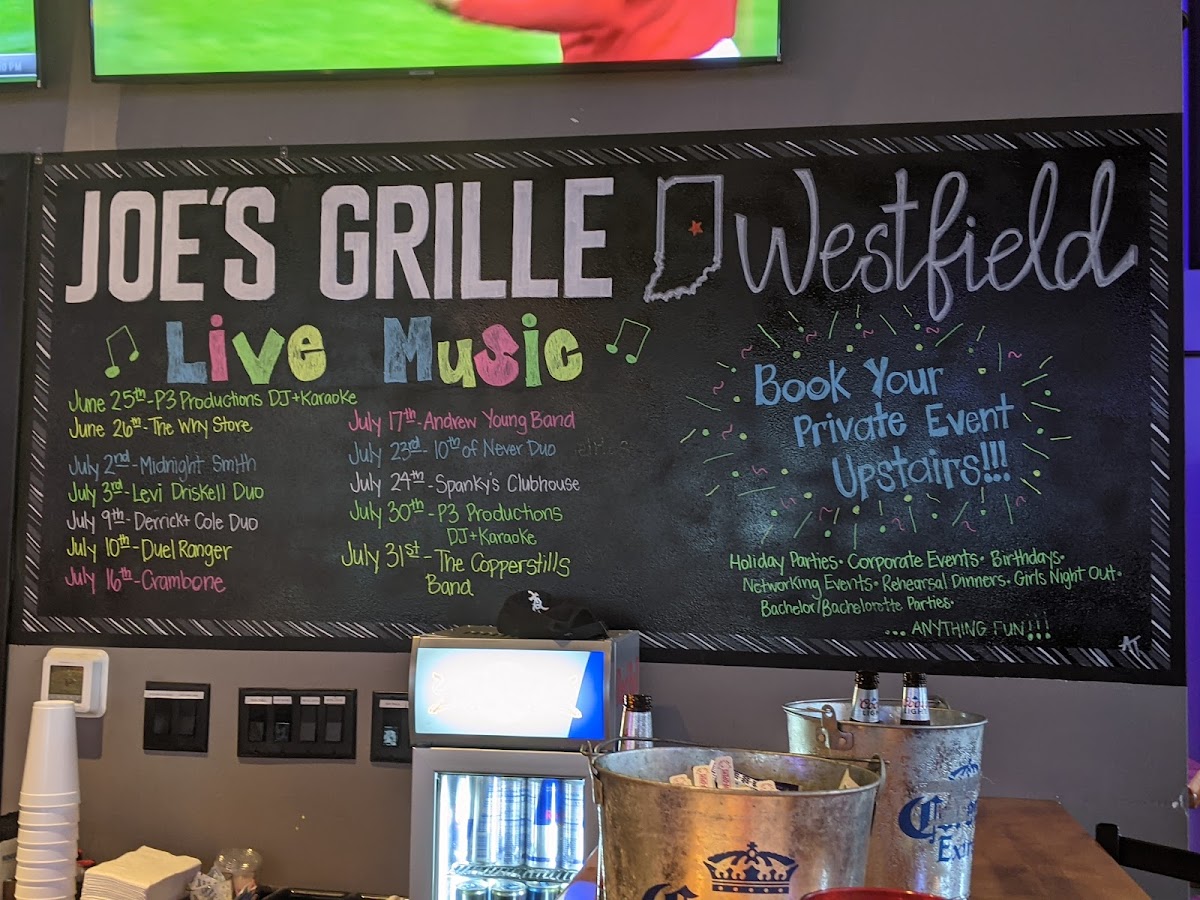 JOE'S GRILLE Westfield
Live Music
June 25th-P3 Productions DJ+Karaoke
June 26th-The Why Store
July 2nd-Midnight Smith
July 3rd-Levi Driskell Duo
July 9th-Derrick+ Cole Duo
July 10th-Duel Ranger
July 16th-Crambone
July 17th-Andrew Young Band
July 23rd-10th of Never Duo
July 24th-Spanky's Clubhouse
July 30th-P3 Productions
DJ+Karaoke
July 31st-The Copperstills
Band
Book Your
Private Event
Upstairs!!!
Holiday Parties• Corporate Events• Birthdays•
Networking Events• Rehearsal Dinners• Girls Night Out•
Bachelor/Bachelorette Parties•
... ANYTHING FUN!!!
AT
LIGHT
Extra